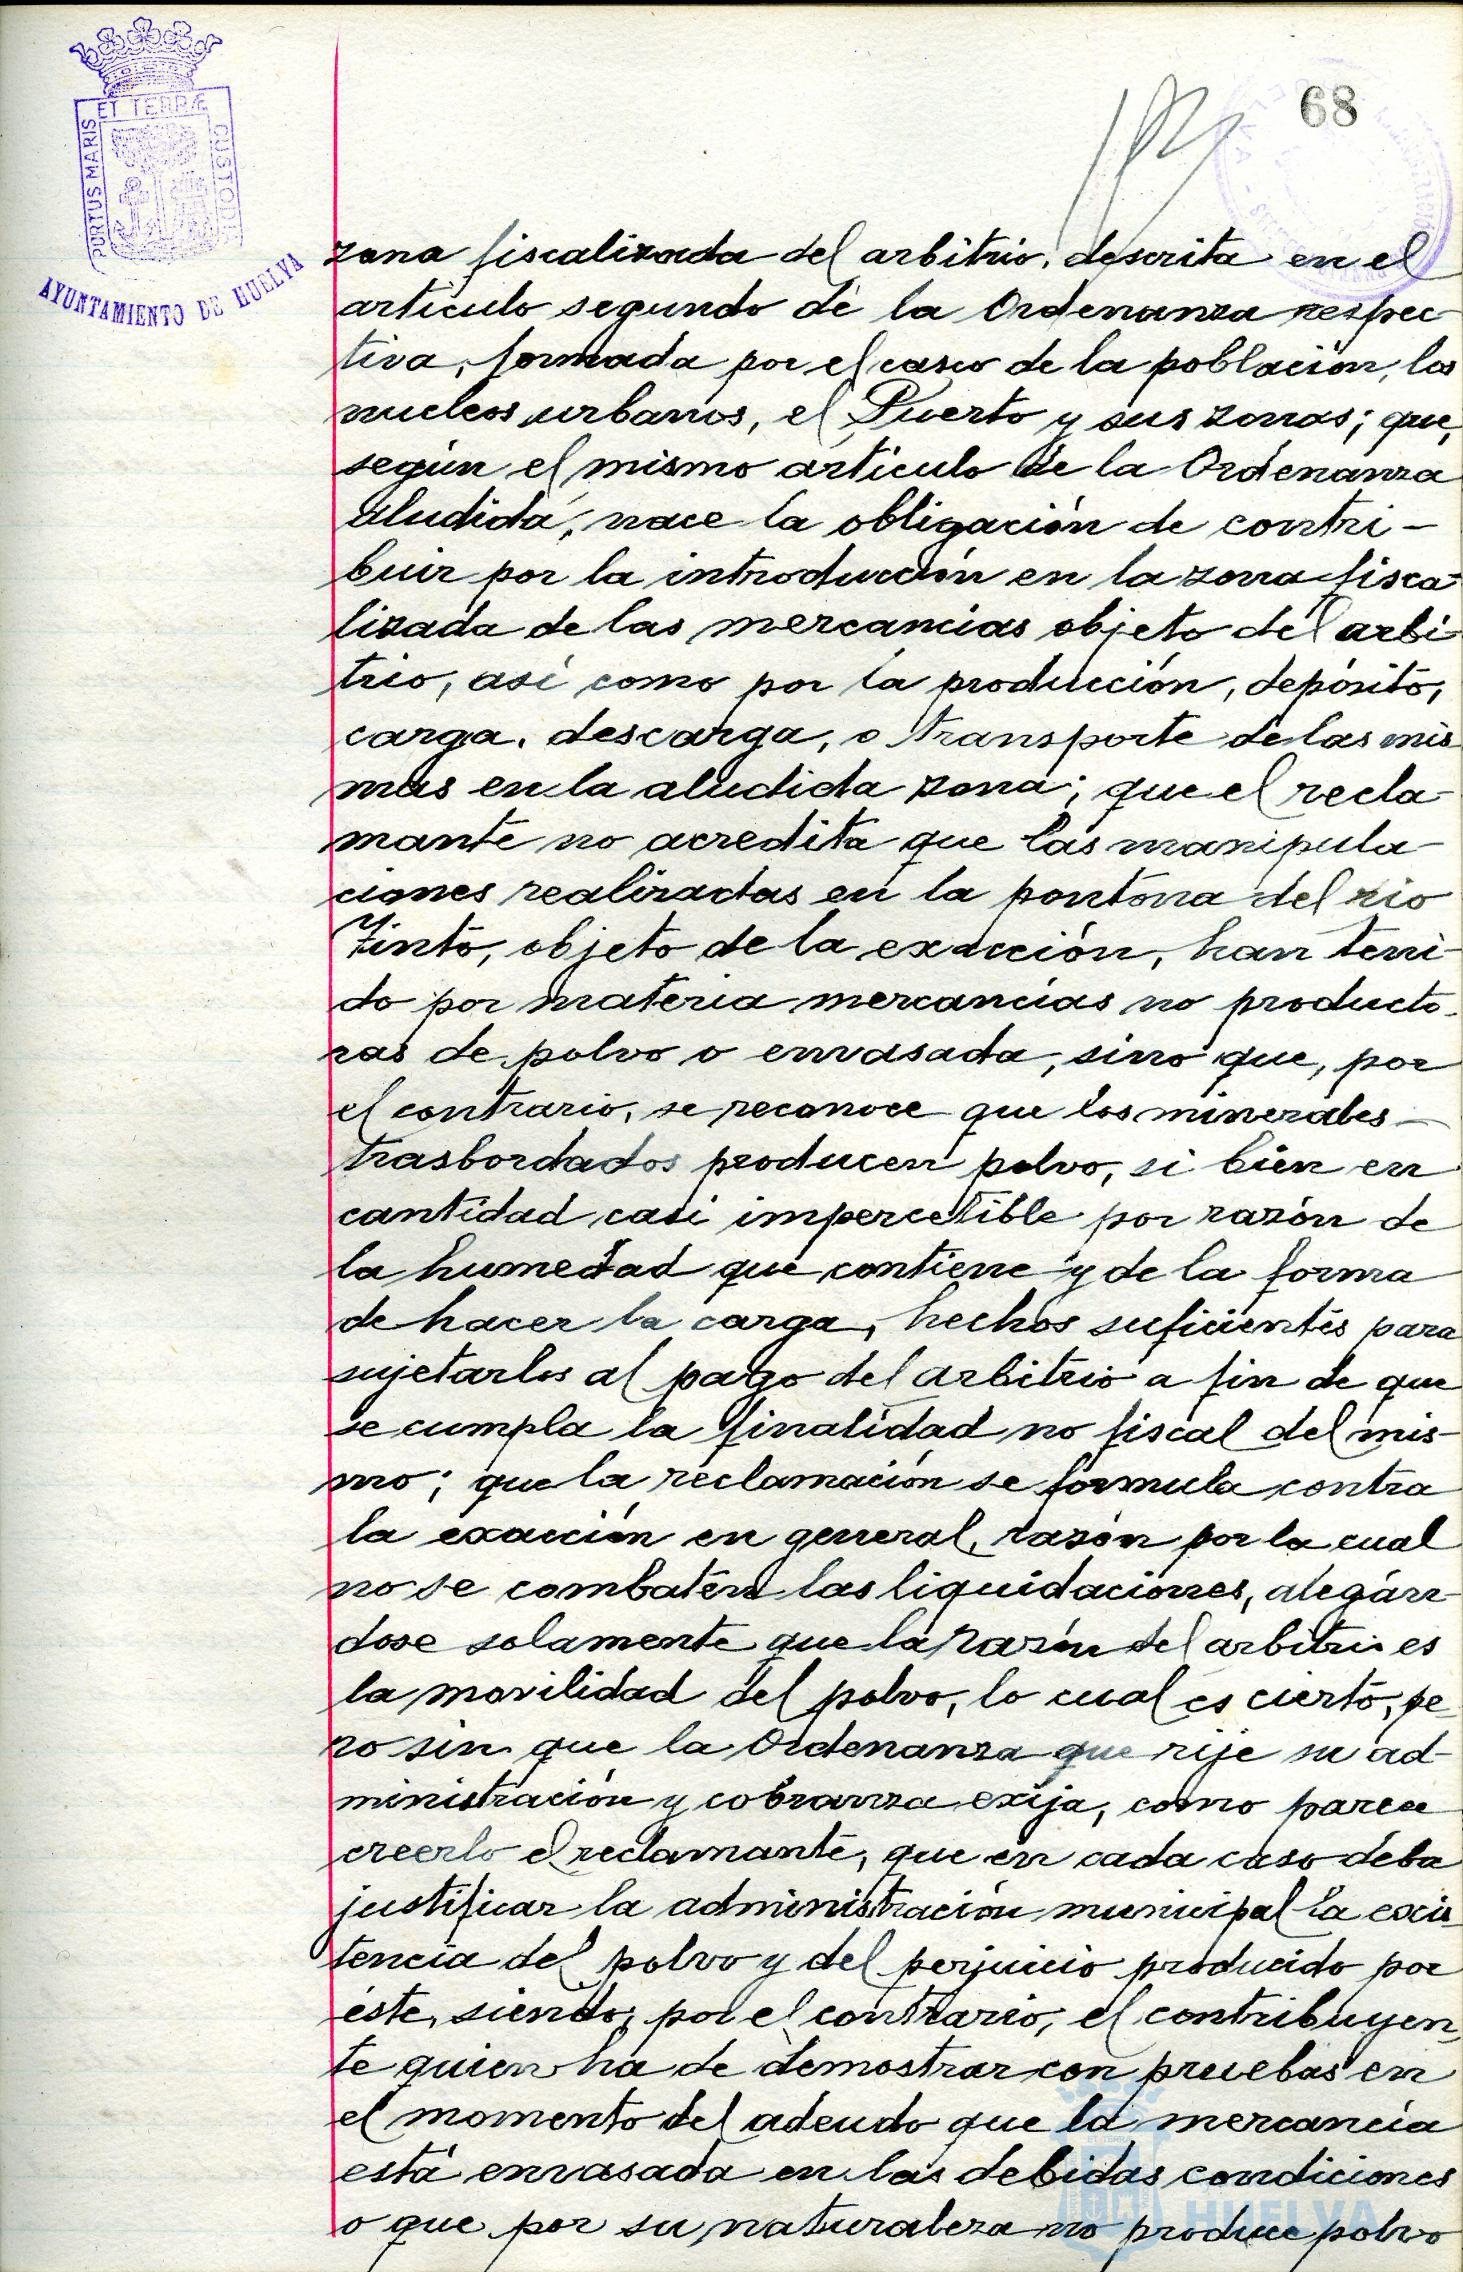 PORTUS MARIS ET TERRÆ CUSTODI
AYUNTAMIENTO DE HUELVA
68
zona fiscalizada del arbitrio, descrita en el
artículo segundo de la Ordenanza respec-
tiva, formada por el casco de la población, los
nucleos urbanos, el Puerto y sus zonas; que,
según el mismo artículo de la Ordenanza
aludida, nace la obligación de contri-
buir por la introducción en la zona fisca-
lizada de las mercancias objeto del arbi-
trio, asi como por la producción, depósito,
carga, descarga, o transporte de las mis-
mas en la aludida zona; que el recla-
mante no acredita que las manipula-
ciones realizadas en la pontona del rio
Tinto, objeto de la exacción, han teni-
do por materia mercancías no producto-
ras de polvo o envasada, sino que, por
el contrario, se reconoce que los minerales
trasbordados producen polvo, si bien en
cantidad casi impercetible por razón de
la humedad que contiene y de la forma
de hacer la carga, hechos suficientes para
sujetarlos al pago del arbitrio a fin de que
se cumpla la finalidad no fiscal del mis-
mo; que la reclamación se formula contra
la exacción en general, razón por la cual
no se combaten las liquidaciones, alegán-
dose solamente que la razón del arbitrio es
la movilidad del polvo, lo cual es cierto, pe-
ro sin que la Ordenanza que rije su ad-
ministración y cobranza exija, como parece
creerlo el reclamante, que en cada caso deba
justificar la administración municipal la exis-
tencia del polvo y del perjuicio producido por
éste, siendo, por el contrario, el contribuyen-
te quien ha de demostrar con pruebas en
el momento del adeudo que la mercancía
está envasada en las debidas condiciones
o que por su naturaleza no produce polvo
HUELVA